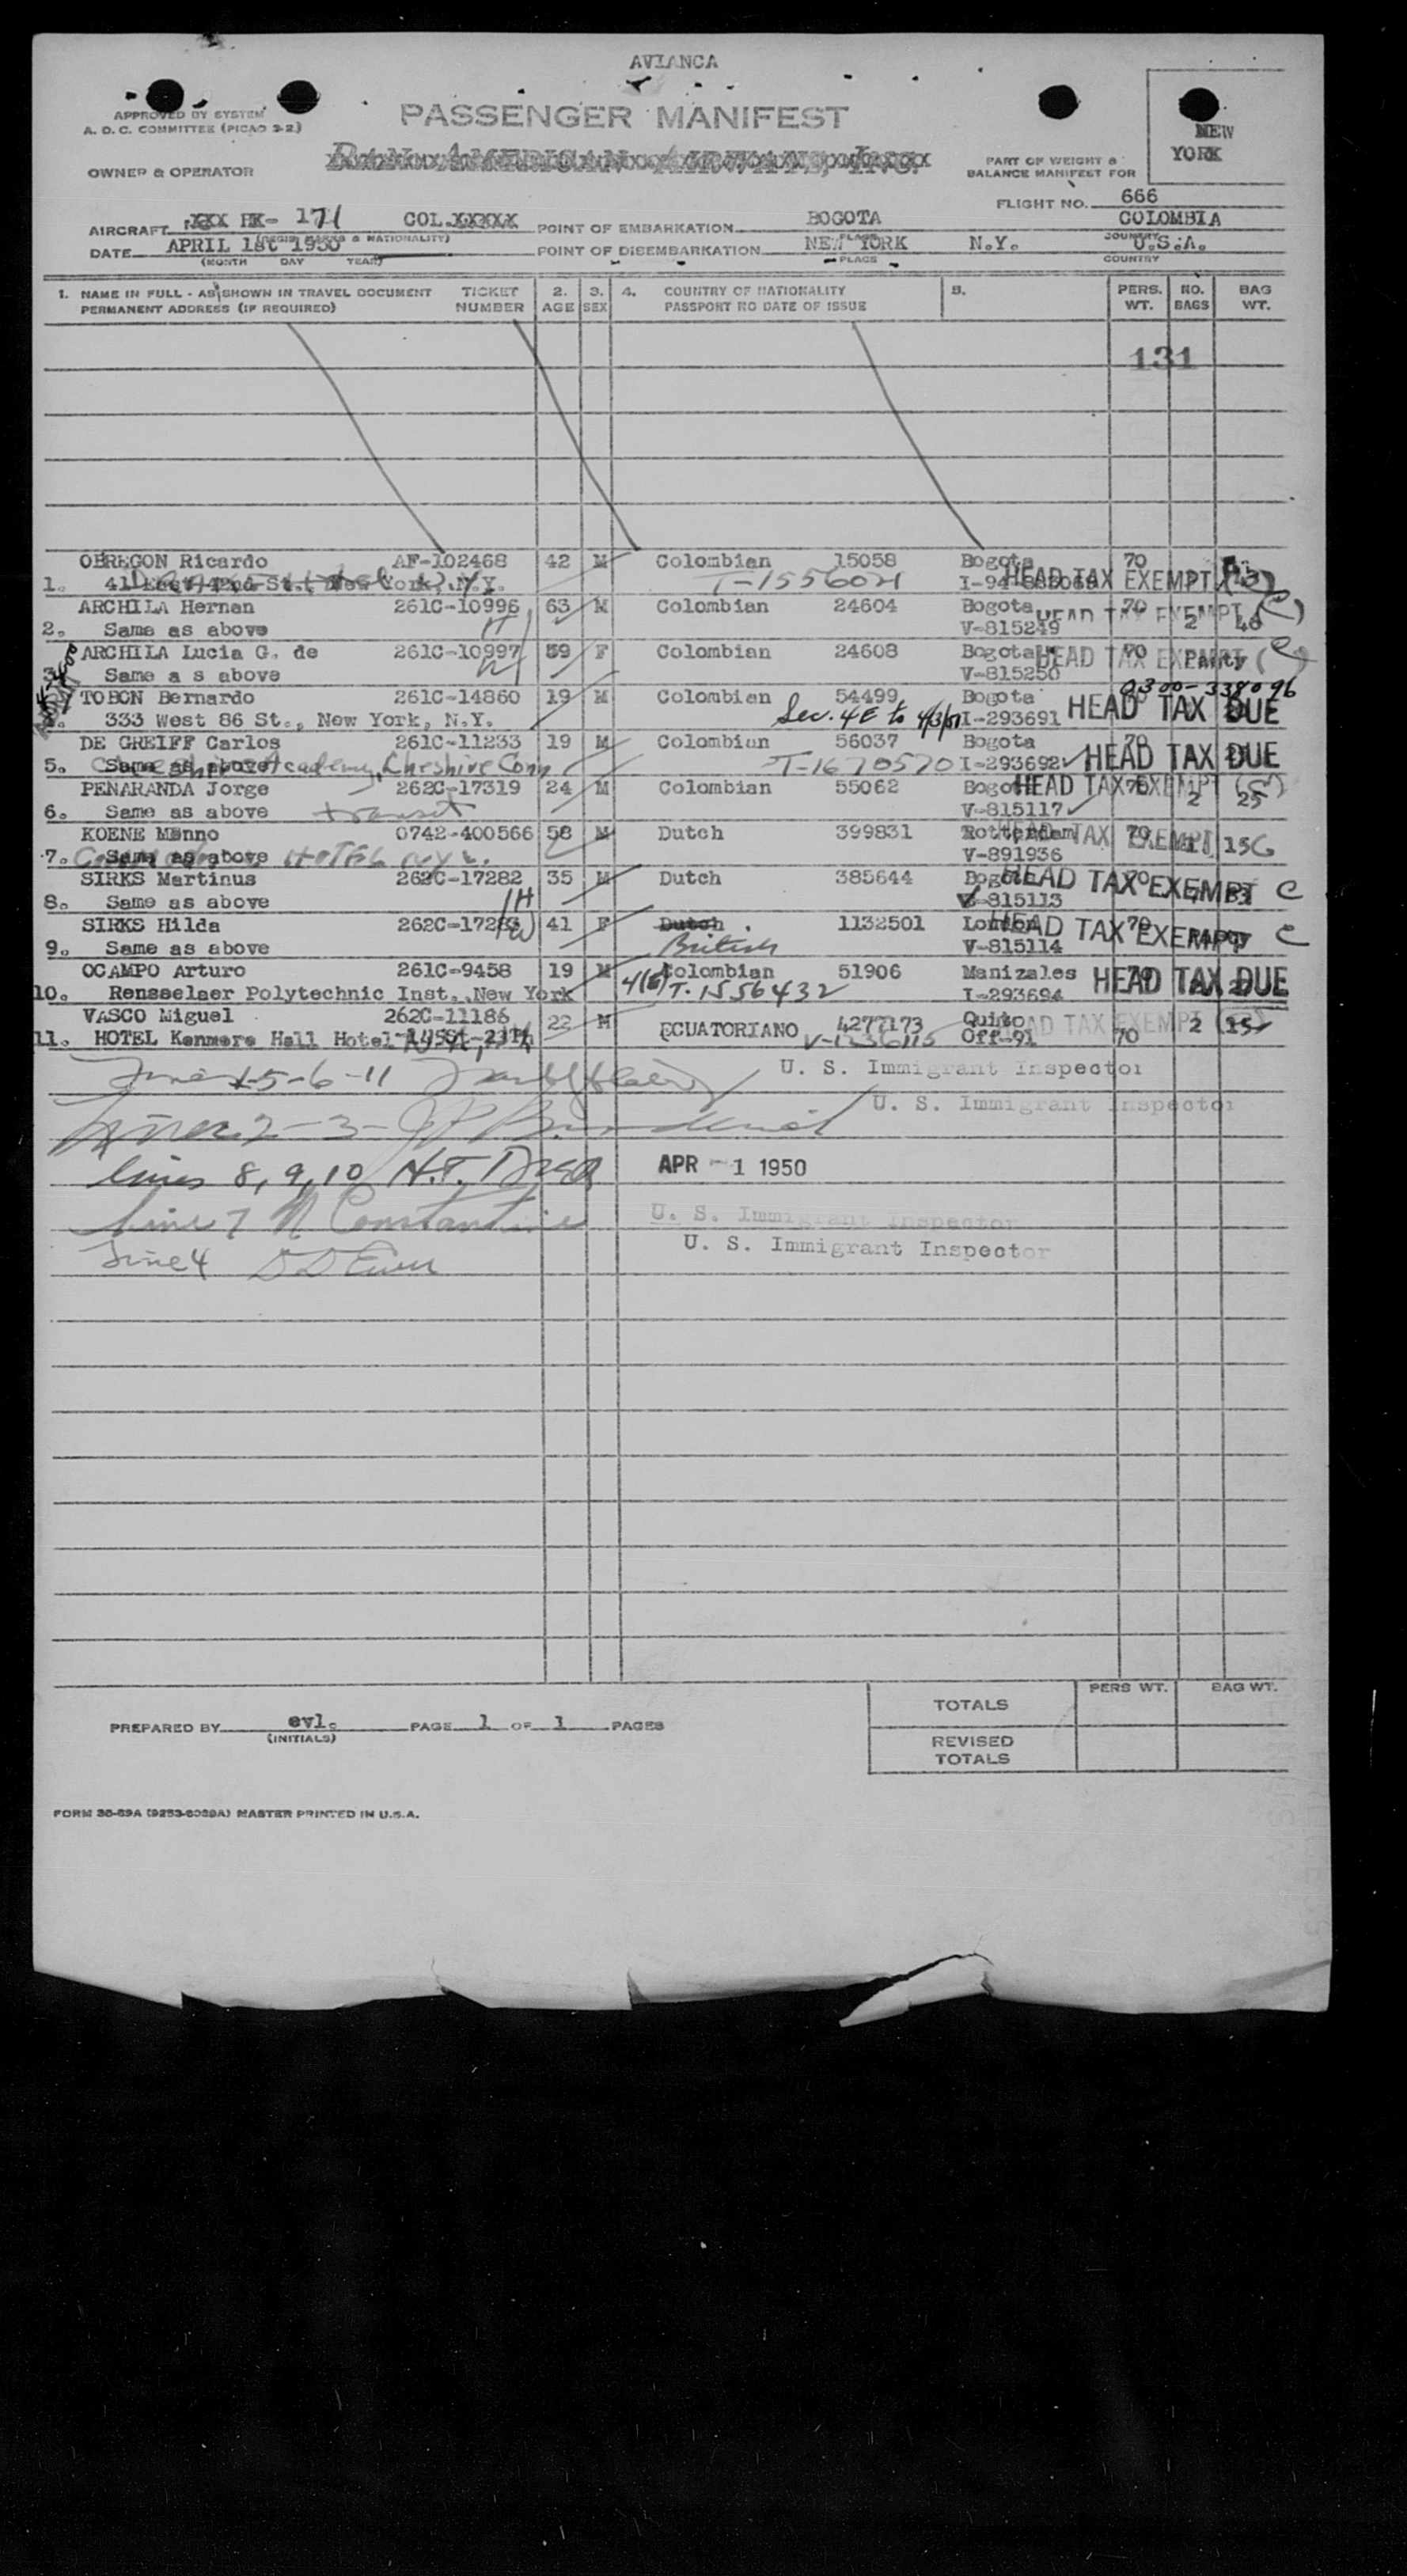 AVIANCA
APPROVED BY SYSTEM
A. O. C. COMMITTEE (PICAO 2-2)
PASSENGER MANIFEST
NEW
YORK
OWNER & OPERATOR
PAN AMERICAN AIRWAYS, INC.
PART OF WEIGHT &
BALANCE MANIFEST FOR
FLIGHT NO. 666
AIRCRAFT XXX HK- 171 COL.XXXXX POINT OF EMBARKATION BOGOTA COLOMBIA
(REGIS. MARKS & NATIONALITY) PLACE COUNTRY
DATE APRIL 1st 1950 POINT OF DISEMBARKATION NEW YORK N.Y. U.S.A.
(MONTH DAY YEAR) PLACE COUNTRY
1. NAME IN FULL - AS SHOWN IN TRAVEL DOCUMENT TICKET 2. 3. 4. COUNTRY OF NATIONALITY 5. PERS. NO. BAG
PERMANENT ADDRESS (IF REQUIRED) NUMBER AGE SEX PASSPORT NO DATE OF ISSUE WT. BAGS WT.
131
OBREGON Ricardo AF-102468 42 M Colombian 15058 Bogota 70
1. 41 East 42nd St., New York, N.Y. T-1556021 I-94 HEAD TAX EXEMPT
ARCHILA Hernan 261C-10996 63 M Colombian 24604 Bogota 70
2. Same as above H V-815249 HEAD TAX EXEMPT 2 40 (C)
ARCHILA Lucia G. de 261C-10997 59 F Colombian 24608 Bogota 70
3. Same a s above W V-815250 HEAD TAX EXEMPT Party (C)
TOBON Bernardo 261C-14860 19 M Colombian 54499 Bogota 0300-338096
4. 333 West 86 St., New York, N.Y. Sec. 4E to 4/3/51 I-293691 HEAD TAX DUE
DE GREIFF Carlos 261C-11233 19 M Colombian 56037 Bogota 70
5. Same as above Cheshire Academy, Cheshire Conn T-1670570 I-293692 HEAD TAX DUE
PENARANDA Jorge 262C-17319 24 M Colombian 55062 Bogota 70 HEAD TAX EXEMPT
6. Same as above transit V-815117 2 25
KOENE Menno 0742-400566 58 M Dutch 399831 Rotterdam 70 HEAD TAX EXEMPT
7. Same as above HOTEL N.Y.C. V-891936 1 15 C
SIRKS Martinus 262C-17282 35 M Dutch 385644 Bogota 70 HEAD TAX EXEMPT C
8. Same as above H V-815113
SIRKS Hilda 262C-17283 W 41 F Dutch 1132501 London 70 HEAD TAX EXEMPT C
9. Same as above British V-815114 Party
OCAMPO Arturo 261C-9458 19 M Colombian 51906 Manizales 70 HEAD TAX DUE
10. Rensselaer Polytechnic Inst., New York 4(E) T-1556432 I-293694
VASCO Miguel 262C-11186 22 M ECUATORIANO 4277173 Quito HEAD TAX EXEMPT 2 15
11. HOTEL Kenmore Hall Hotel V-1236115 Off-91 70
Lines 1-5-6-11 U. S. Immigrant Inspector
Lines 2-3- U. S. Immigrant Inspector
lines 8, 9, 10 H.T. APR -1 1950
Line 7 N Constantine U. S. Immigrant Inspector
Line 4 U. S. Immigrant Inspector
PERS WT. BAG WT.
TOTALS
PREPARED BY evl. PAGE 1 OF 1 PAGES
(INITIALS)
REVISED
TOTALS
FORM 36-89A (9253-6039A) MASTER PRINTED IN U.S.A.